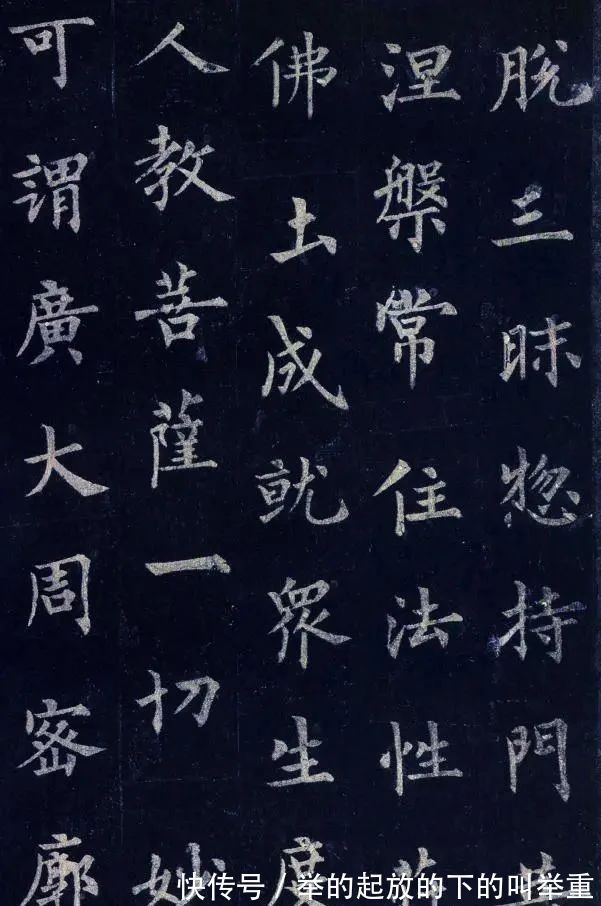 脱三昧惣持門
涅槃常住法性
佛土成就眾生度
人教菩薩一切妙
可謂廣大周密廓
快传号/举的起放的下的叫举重